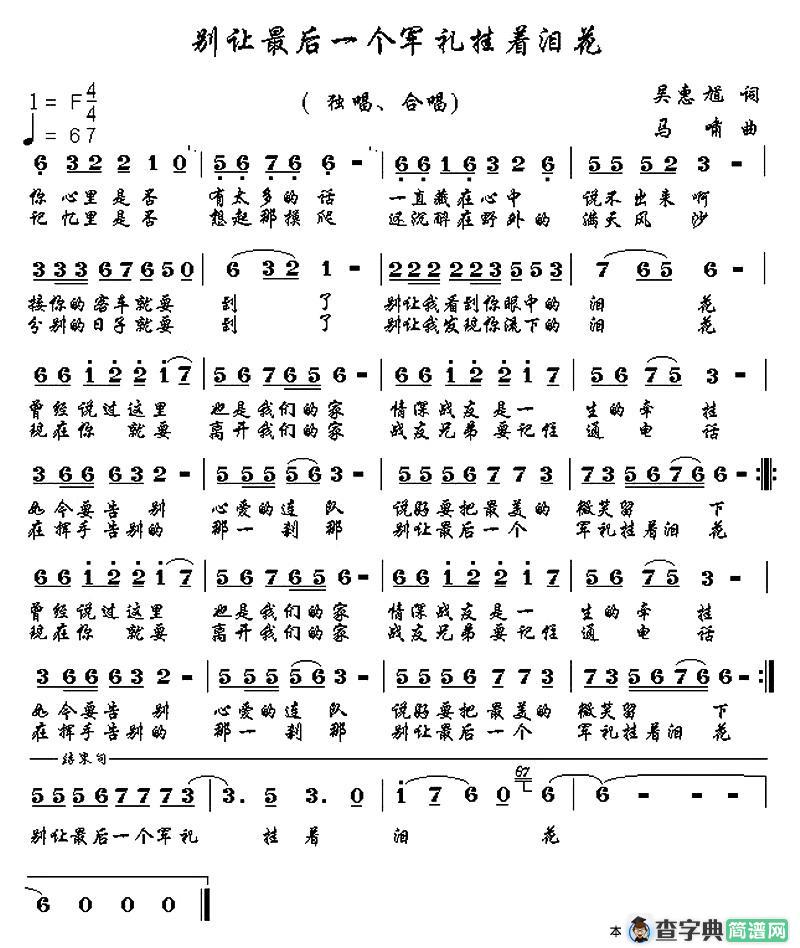 别让最后一个军礼挂着泪花
1=F 4/4
♩=67
(独唱、合唱)
吴惠尴 词
马啸 曲
6 3 2 2 1 0 | 5 6 7 6 6 - | 6 6 1 6 3 2 6 | 5 5 5 2 3 - |
你心里是否 有太多的话 一直藏在心中 说不出来啊
记忆里是否 想起那摸爬 还沉醉在野外的 满天风沙
3 3 3 6 7 6 5 0 | 6 3 2 1 - | 2 2 2 2 2 3 5 5 3 | 7 6 5 6 - |
接你的客车就要 到 了 别让我看到你眼中的 泪 花
分别的日子就要 到 了 别让我发现你流下的 泪 花
6 6 1 2 2 1 7 | 5 6 7 6 5 6 - | 6 6 1 2 2 1 7 | 5 6 7 5 3 - |
曾经说过这里 也是我们的家 情深战友是一 生的牵挂
现在你 就要 离开我们的家 战友兄弟要记住 通电话
3 6 6 6 3 2 - | 5 5 5 5 6 3 - | 5 5 5 6 7 7 3 | 7 3 5 6 7 6 6 - :||:
如今要告别 心爱的连队 说好要把最美的 微笑留 下
在挥手告别的 那一刹那 别让最后一个 军礼挂着泪花
6 6 1 2 2 1 7 | 5 6 7 6 5 6 - | 6 6 1 2 2 1 7 | 5 6 7 5 3 - |
曾经说过这里 也是我们的家 情深战友是一 生的牵挂
现在你 就要 离开我们的家 战友兄弟要记住 通电话
3 6 6 6 3 2 - | 5 5 5 5 6 3 - | 5 5 5 6 7 7 3 | 7 3 5 6 7 6 6 - :||
如今要告别 心爱的连队 说好要把最美的 微笑留 下
在挥手告别的 那一刹那 别让最后一个 军礼挂着泪花
结束句
5 5 5 6 7 7 7 3 | 3. 5 3. 0 | 1 7 6 0 67 6 | 6 - - - |
别让最后一个军礼 挂着 泪 花
6 0 0 0 ||
本
查字典简谱网